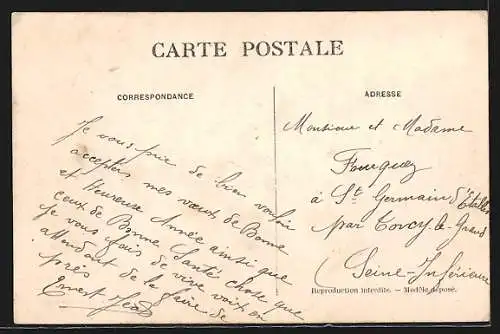 CARTE POSTALE
CORRESPONDANCE
ADRESSE
Je vous prie de bien vouloir
accepter mes vœux de Bonne
et Heureuse Année ainsi que
ceux de Bonne Santé chose que
je vous fais de vive voix en
attendant de la faire de
près
Ernest
Monsieur et Madame
Fouquez
à St Germain d'Etables
par Torcy-le-Grand
(Seine-Inférieure
Reproduction interdite. — Modèle déposé.